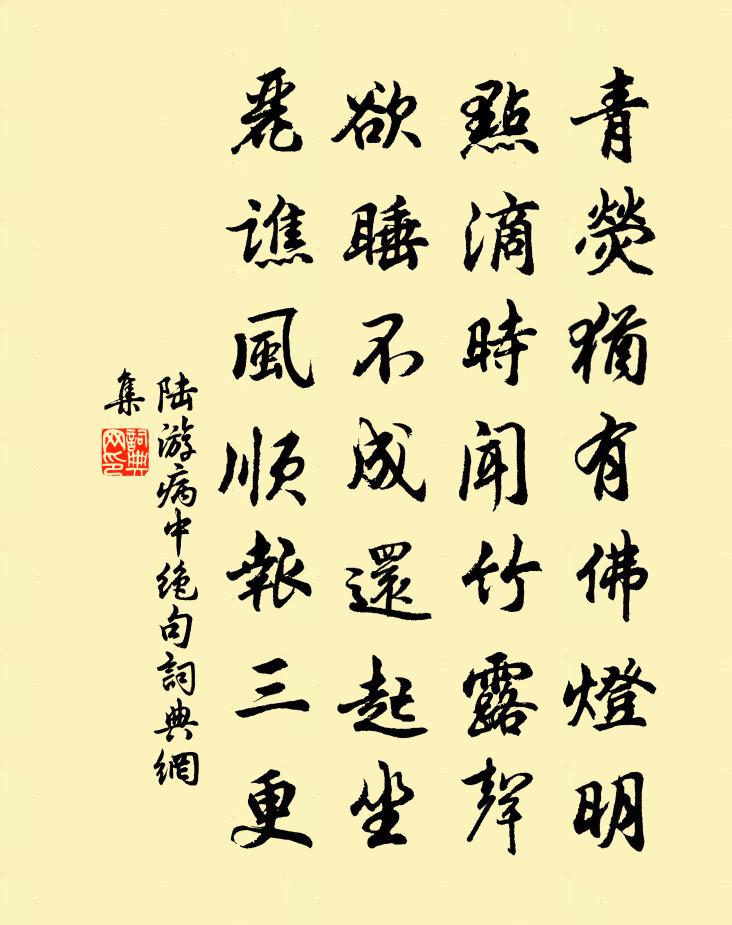 青熒猶有佛燈明
點滴時聞竹露聲
欲睡不成還起坐
麗譙風順報三更
陸游病中絶句詞典網
集
詞典
网印